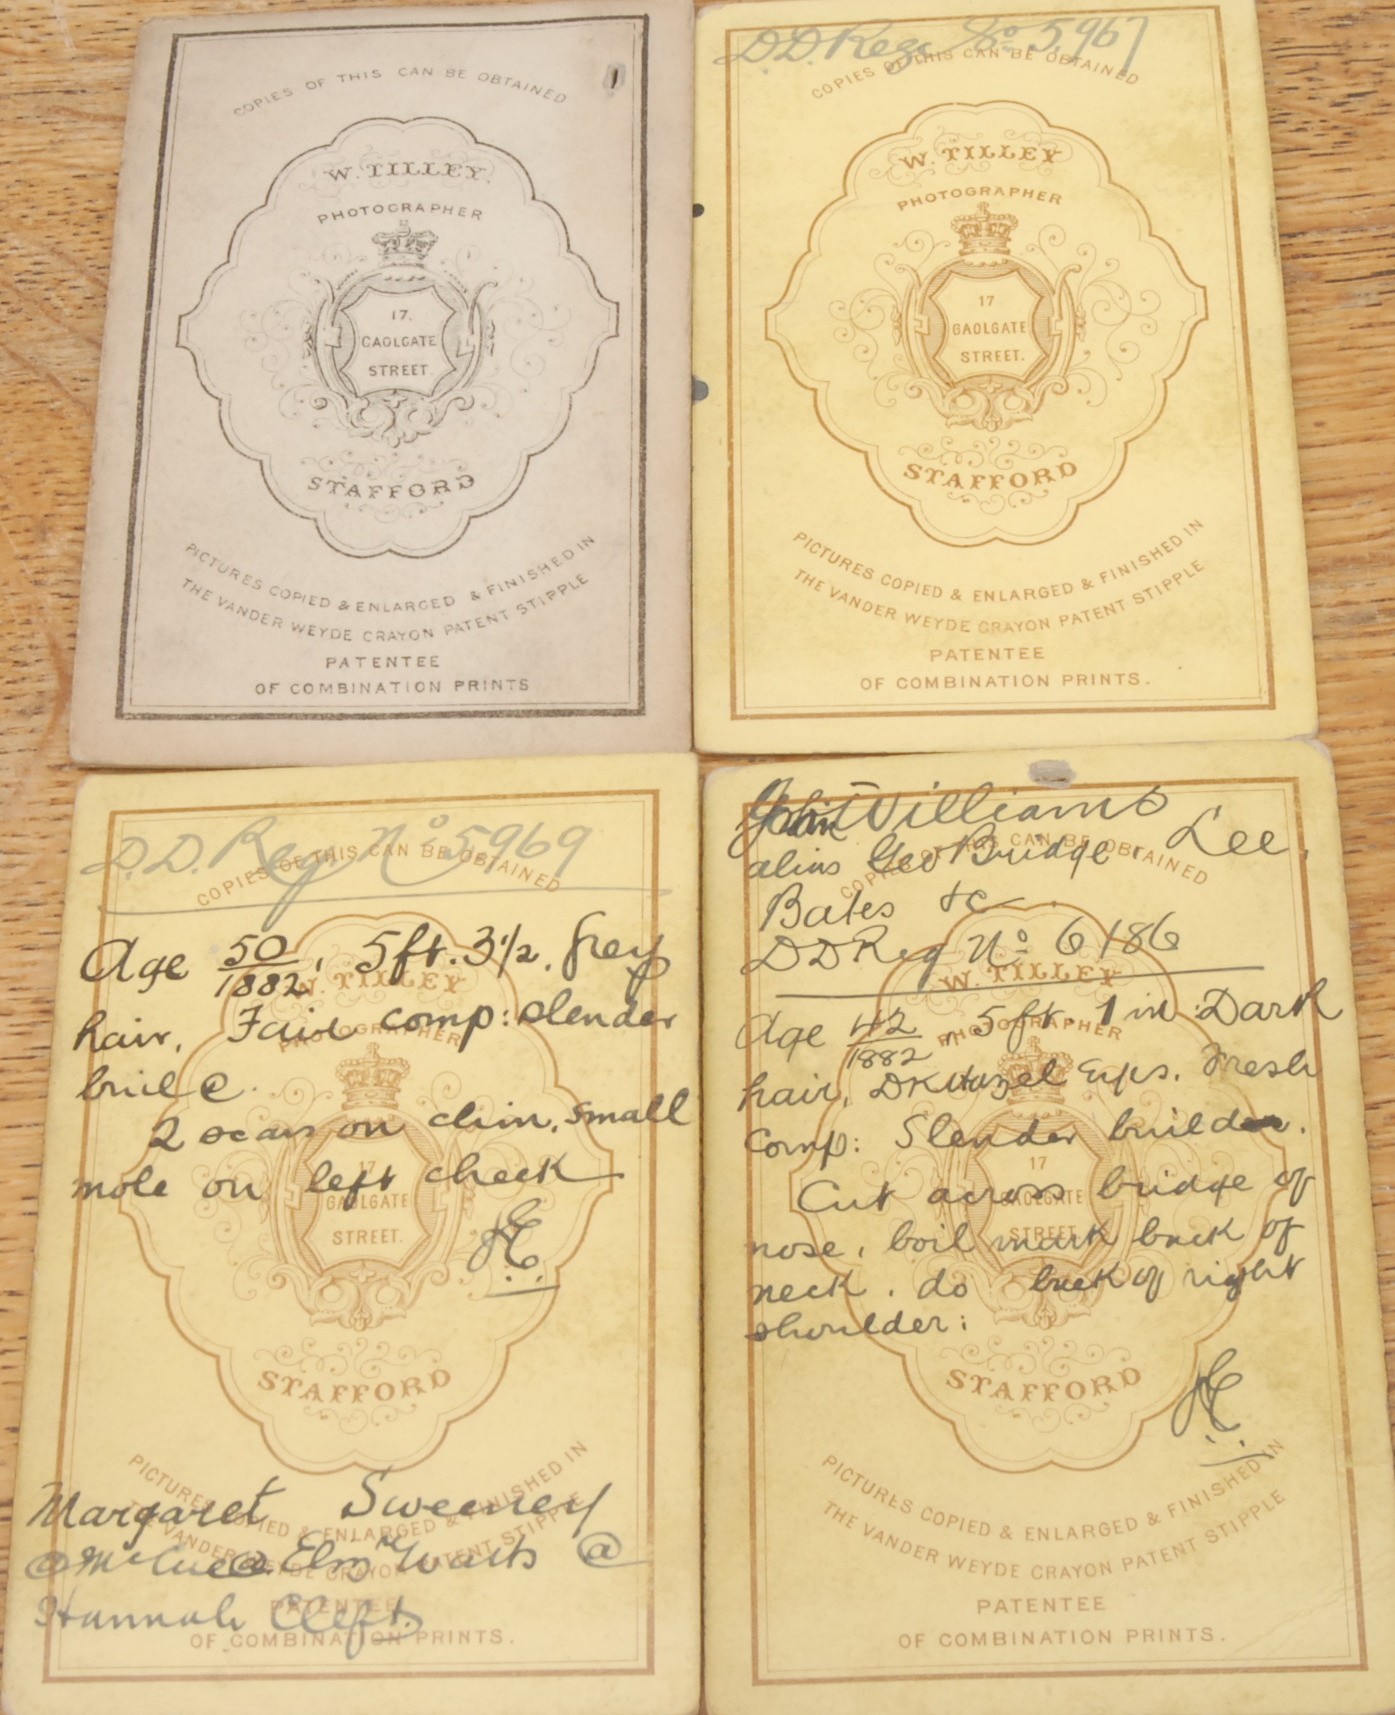 COPIES OF THIS CAN BE OBTAINED
W. TILLEY.
PHOTOGRAPHER
17.
GAOLGATE
STREET.
STAFFORD
PICTURES COPIED & ENLARGED & FINISHED IN
THE VANDER WEYDE CRAYON PATENT STIPPLE
PATENTEE
OF COMBINATION PRINTS
D.D. Reg No 5,967
COPIES OF THIS CAN BE OBTAINED
W. TILLEY
PHOTOGRAPHER
17
GAOLGATE
STREET.
STAFFORD
PICTURES COPIED & ENLARGED & FINISHED IN
THE VANDER WEYDE CRAYON PATENT STIPPLE
PATENTEE
OF COMBINATION PRINTS.
D.D. Reg No 5969
COPIES OF THIS CAN BE OBTAINED
Age 50/1882, 5ft. 3½, Grey
W. TILLEY
hair, Fair comp: slender
PHOTOGRAPHER
build.
2 scars on chin, small
mole on left cheek
GAOLGATE
STREET.
STAFFORD
PICTURES COPIED & ENLARGED & FINISHED IN
Margaret Sweeney
THE VANDER WEYDE CRAYON PATENT STIPPLE
@ McCue @ Watts @
PATENTEE
Hannah Cleft.
OF COMBINATION PRINTS.
John Williams
alias Geo Bridge, Lee,
COPIES OF THIS CAN BE OBTAINED
Bates &c
DD Reg No 6186
W. TILLEY
Age 42/1882, 5ft 1 in: Dark
PHOTOGRAPHER
hair, DK Hazel Eyes. Fresh
comp: Slender build.
17
Cut across bridge of
GAOLGATE
nose, boil mark back of
STREET
neck. do back of right
shoulder:
STAFFORD
PICTURES COPIED & ENLARGED & FINISHED IN
THE VANDER WEYDE CRAYON PATENT STIPPLE
PATENTEE
OF COMBINATION PRINTS.